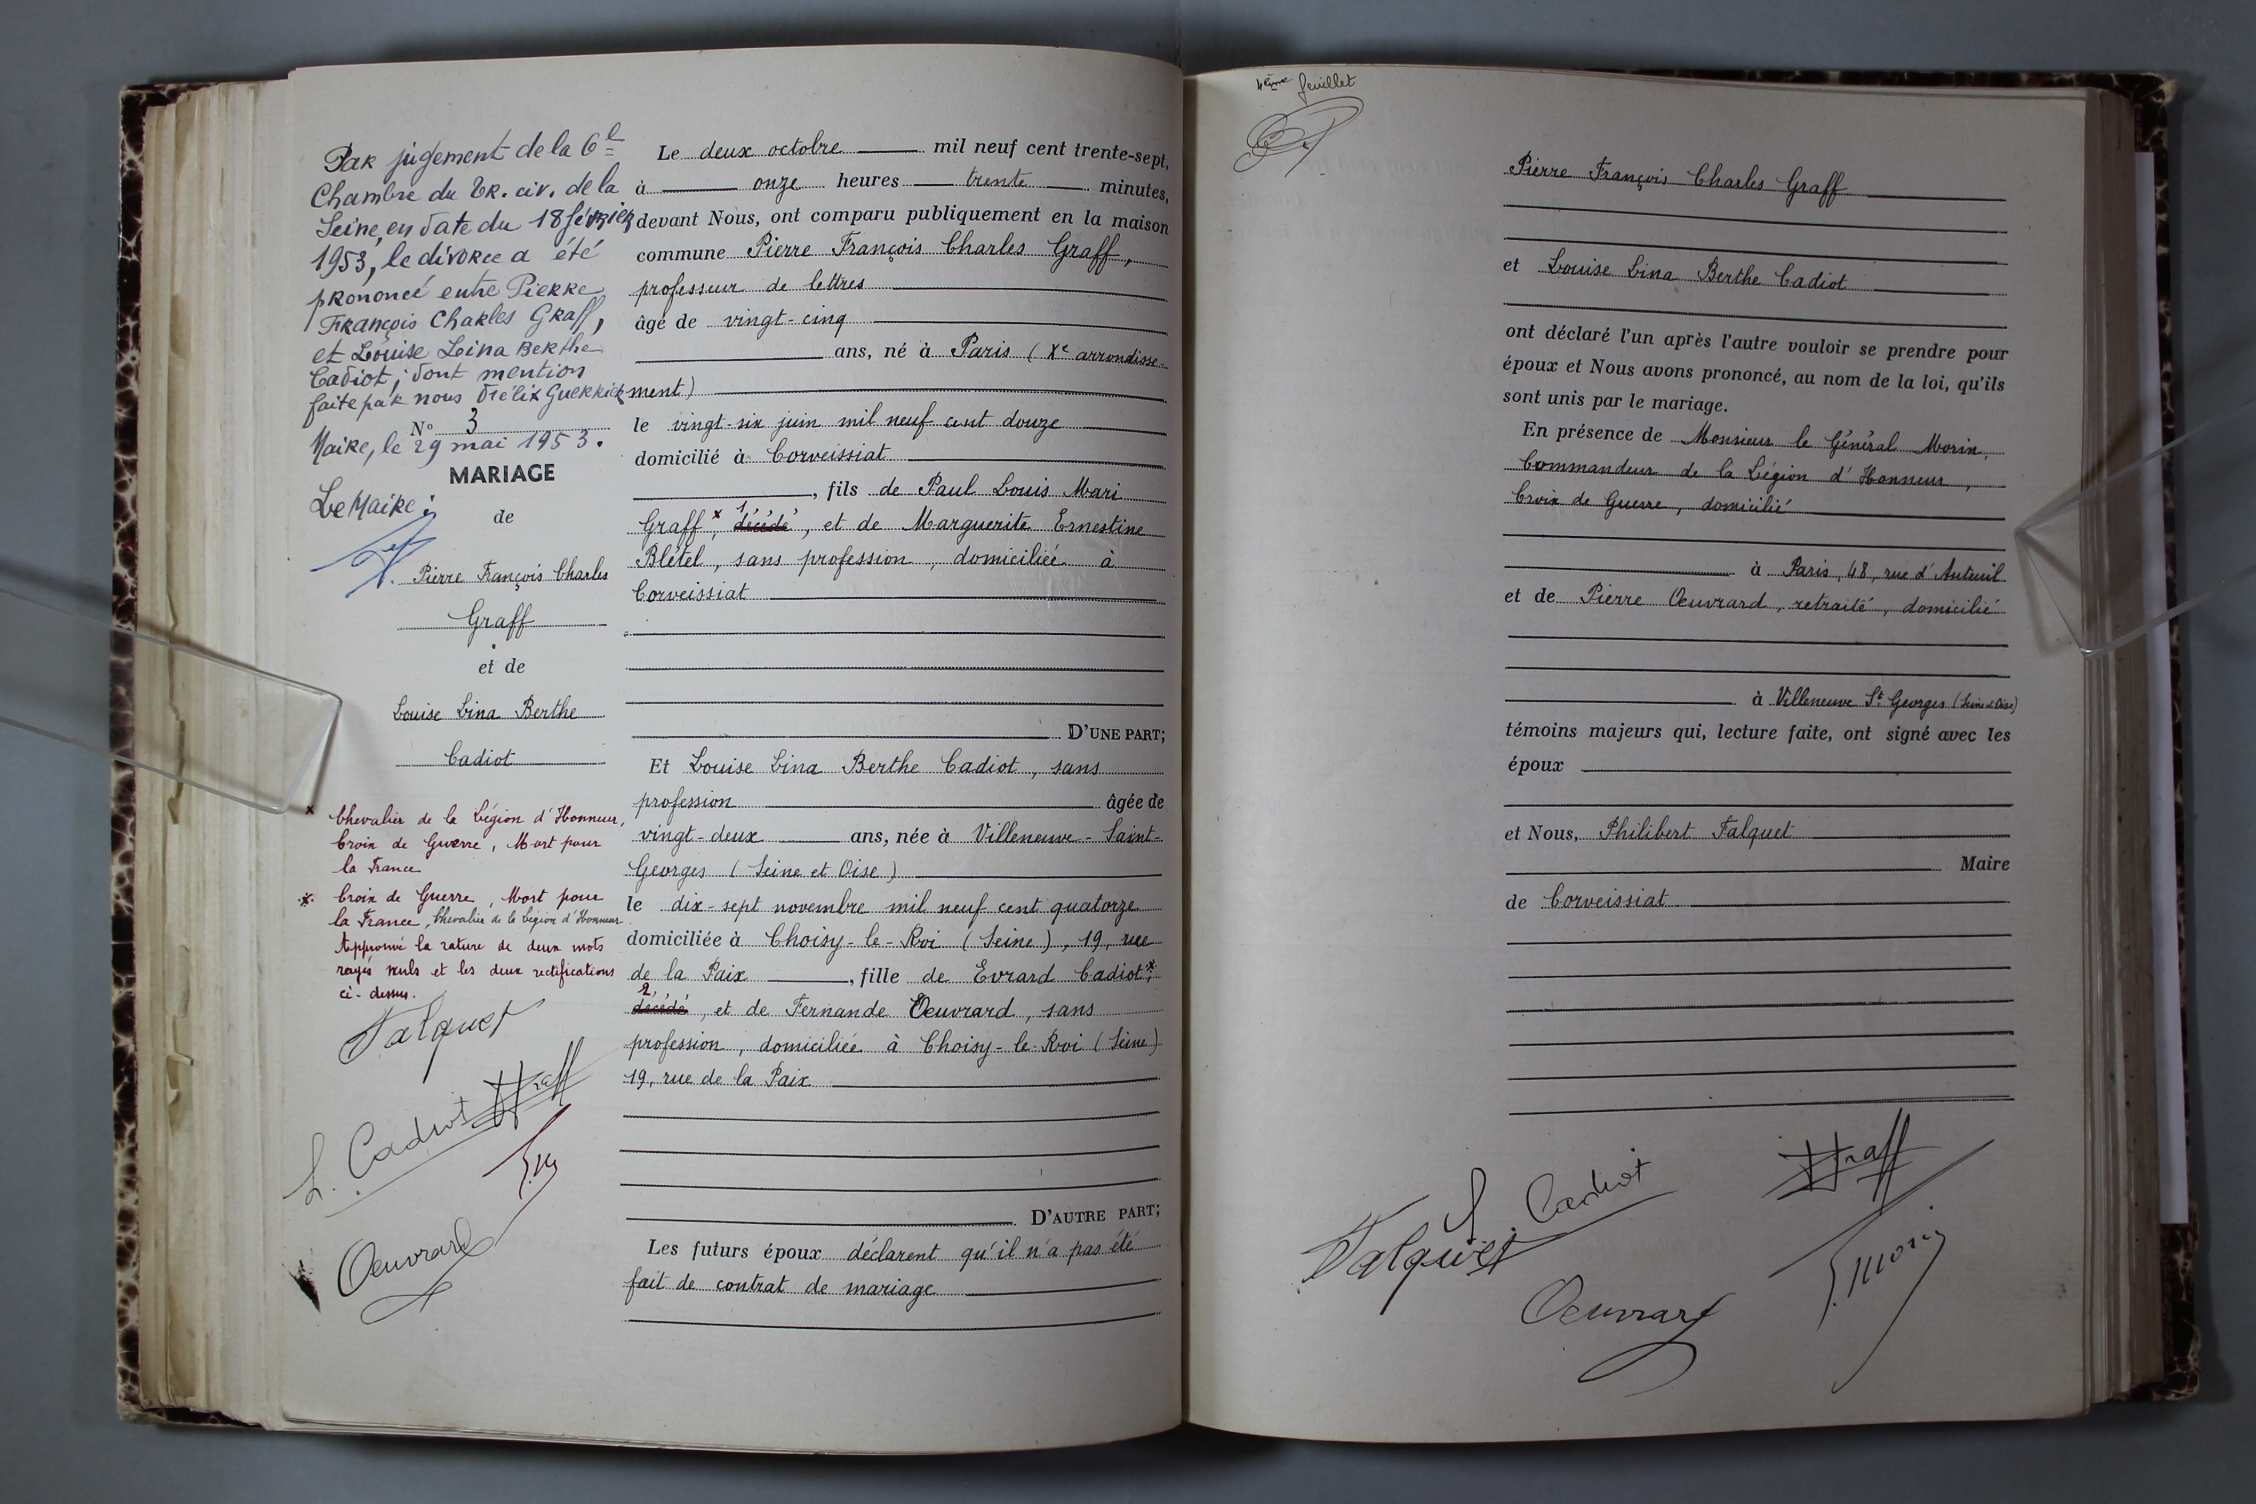 Par jugement de la 6e
Chambre du Tr. civ. de la
Seine, en date du 18 février
1953, le divorce a été
prononcé entre Pierre
François Charles Graff,
et Louise Lina Berthe
Cadiot ; dont mention
faite par nous Guerrier
Maire, le 29 mai 1953.
Le Maire :
N° 3
MARIAGE
de
Pierre François Charles
Graff
et de
Louise Lina Berthe
Cadiot
x Chevalier de la Légion d'Honneur,
Croix de Guerre, Mort pour
la France
x Croix de Guerre, Mort pour
la France, Chevalier de la Légion d'Honneur
Approuvé la rature de deux mots
rayés nuls et les deux rectifications
ci-dessus.
Falquet
L. Cadiot Graff
Oeuvrard
Le deux octobre mil neuf cent trente-sept,
à onze heures trente minutes,
devant Nous, ont comparu publiquement en la maison
commune Pierre François Charles Graff,
professeur de lettres
âgé de vingt-cinq
ans, né à Paris (Xe arrondisse-
ment)
le vingt-six juin mil neuf cent douze
domicilié à Corveissiat
, fils de Paul Louis Mari
Graff x, 1 décédé, et de Marguerite Ernestine
Blétel, sans profession, domiciliée à
Corveissiat
D'UNE PART;
Et Louise Lina Berthe Cadiot, sans
profession âgée de
vingt-deux ans, née à Villeneuve-Saint-
Georges (Seine et Oise)
le dix-sept novembre mil neuf cent quatorze
domiciliée à Choisy-le-Roi (Seine), 19, rue
de la Paix, fille de Evrard Cadiot x,
2 décédé, et de Fernande Oeuvrard, sans
profession, domiciliée à Choisy-le-Roi (Seine)
19, rue de la Paix
D'AUTRE PART;
Les futurs époux déclarent qu'il n'a pas été
fait de contrat de mariage
4ème feuillet
Pierre François Charles Graff
et Louise Lina Berthe Cadiot
ont déclaré l'un après l'autre vouloir se prendre pour
époux et Nous avons prononcé, au nom de la loi, qu'ils
sont unis par le mariage.
En présence de Monsieur le Général Morin,
Commandeur de la Légion d'Honneur,
Croix de Guerre, domicilié
à Paris, 48, rue d'Auteuil
et de Pierre Oeuvrard, retraité, domicilié
à Villeneuve St Georges (Seine et Oise)
témoins majeurs qui, lecture faite, ont signé avec les
époux
et Nous, Philibert Falquet
Maire
de Corveissiat
Falquet L. Cadiot Graff
Oeuvrard Morin